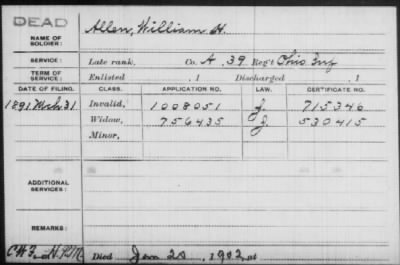 DEAD
NAME OF SOLDIER: Allen, William H.
SERVICE: Late rank, Co. A, 39 Reg't Ohio Inf
TERM OF SERVICE: Enlisted , 1 Discharged , 1
DATE OF FILING. CLASS. APPLICATION NO. LAW. CERTIFICATE NO.
1891 Mch 31 Invalid, 1008051 J. 715346
Widow, 756435 J. 530415
Minor,
ADDITIONAL SERVICES:
REMARKS:
Died Jan 20, 1902, at